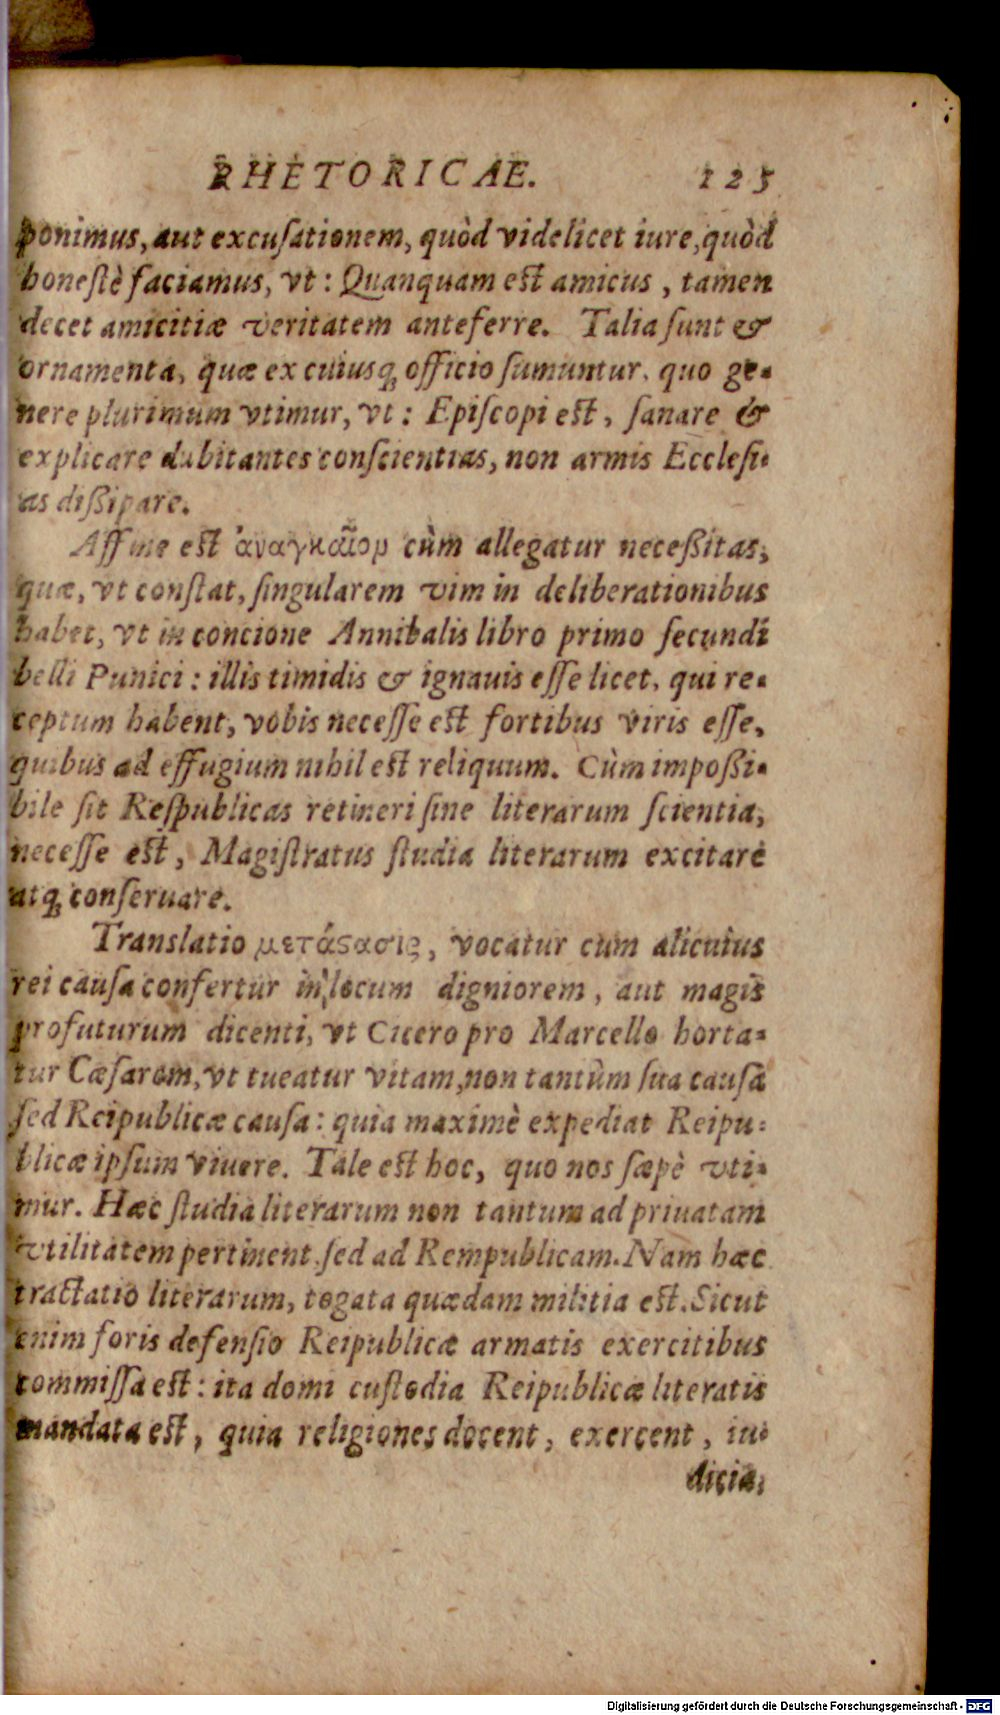 RHETORICAE. 125
ponimus, aut excuſationem, quòd videlicet iure, quòd
honeſtè faciamus, vt: Quanquam eſt amicus, tamen
decet amicitiæ veritatem anteferre. Talia ſunt &
ornamenta, quæ ex cuiusq; officio ſumuntur, quo ge-
nere plurimum vtimur, vt: Epiſcopi eſt, ſanare &
explicare dubitantes conſcientias, non armis Eccleſi-
as dißipare.
Affine eſt ἀναγκαῖον cùm allegatur neceßitas,
quæ, vt conſtat, ſingularem vim in deliberationibus
habet, vt in concione Annibalis libro primo ſecundi
belli Punici: illis timidis & ignauis eſſe licet, qui re-
ceptum habent, vobis neceſſe eſt fortibus viris eſſe,
quibus ad effugium nihil eſt reliquum. Cùm impoßi-
bile ſit Reſpublicas retineri ſine literarum ſcientia,
neceſſe eſt, Magiſtratus ſtudia literarum excitare
atq; conſeruare.
Translatio μετάϛασις, vocatur cum alicuius
rei cauſa confertur in locum digniorem, aut magis
profuturum dicenti, vt Cicero pro Marcello horta-
tur Cæſarem, vt tueatur vitam, non tantùm ſua cauſa
ſed Reipublicæ cauſa: quia maximè expediat Reipu-
blicæ ipſum viuere. Tale eſt hoc, quo nos ſæpè vti-
mur. Hæc ſtudia literarum non tantum ad priuatam
vtilitatem pertinent ſed ad Rempublicam. Nam hæc
tractatio literarum, togata quædam militia eſt. Sicut
enim foris defenſio Reipublicæ armatis exercitibus
commiſſa eſt: ita domi cuſtodia Reipublicæ literatis
mandata eſt, quia religiones docent, exercent, iu-
dicia,
Digitalisierung gefördert durch die Deutsche Forschungsgemeinschaft - DFG